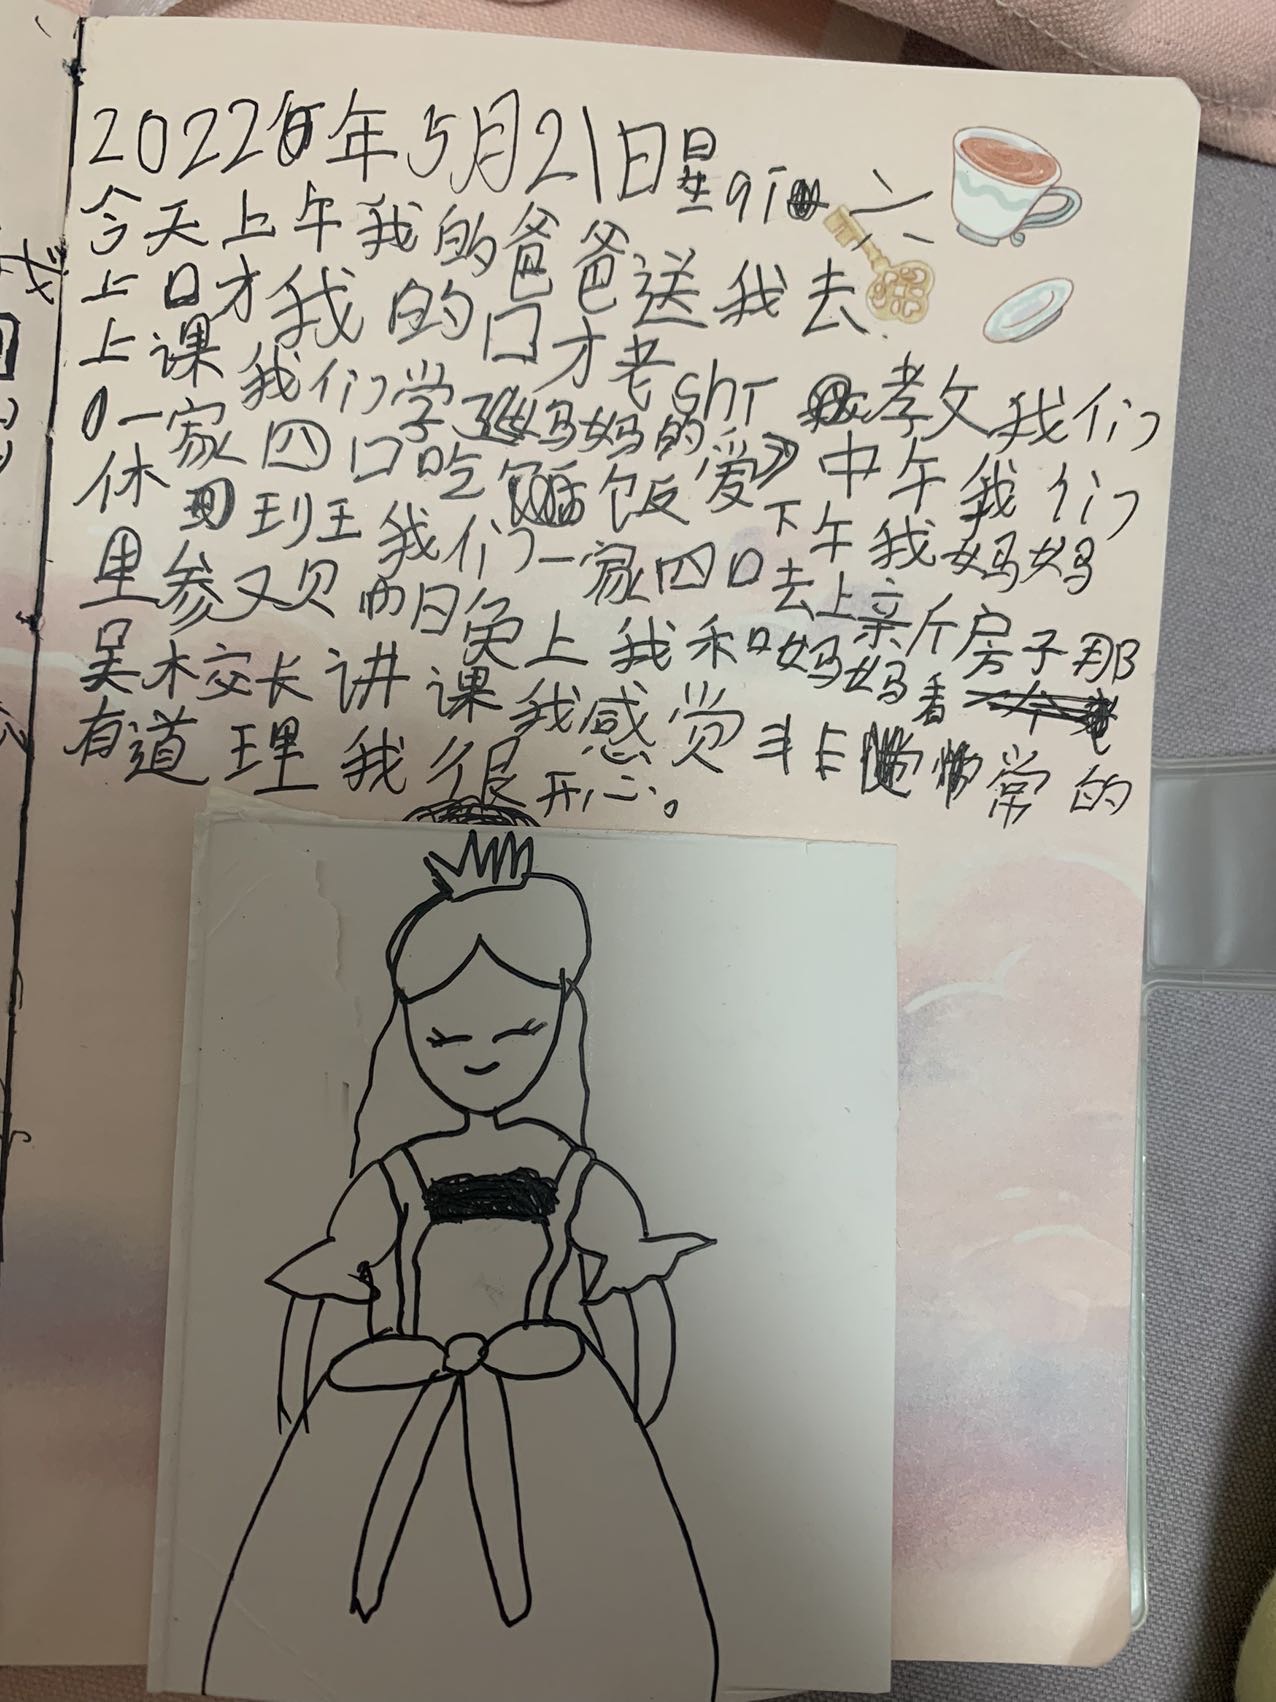 2022年5月21日星qi六
今天上午我的爸爸送我去
上口才我的口才老shr孝文我们
上课我们学了妈妈的爱》中午我们
一家四口吃饭下午我妈妈
休班我们一家四口去上新房子那
里参观晚上我和妈妈看
吴校长讲课我感觉非常的
有道理我很开心。